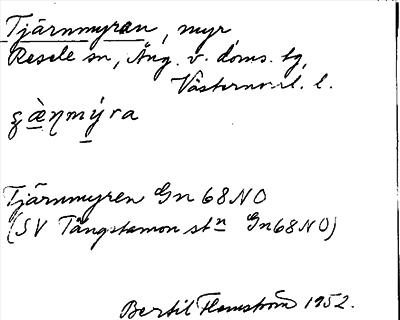 Tjärnmyran, myr,
Resele sn, Ång. v. doms. tg,
Västernorrl. l.
Tjärnmyren Gn 68 NO
(SV Tångstamon stn Gn 68 NO)
Bertil Flemström 1952.